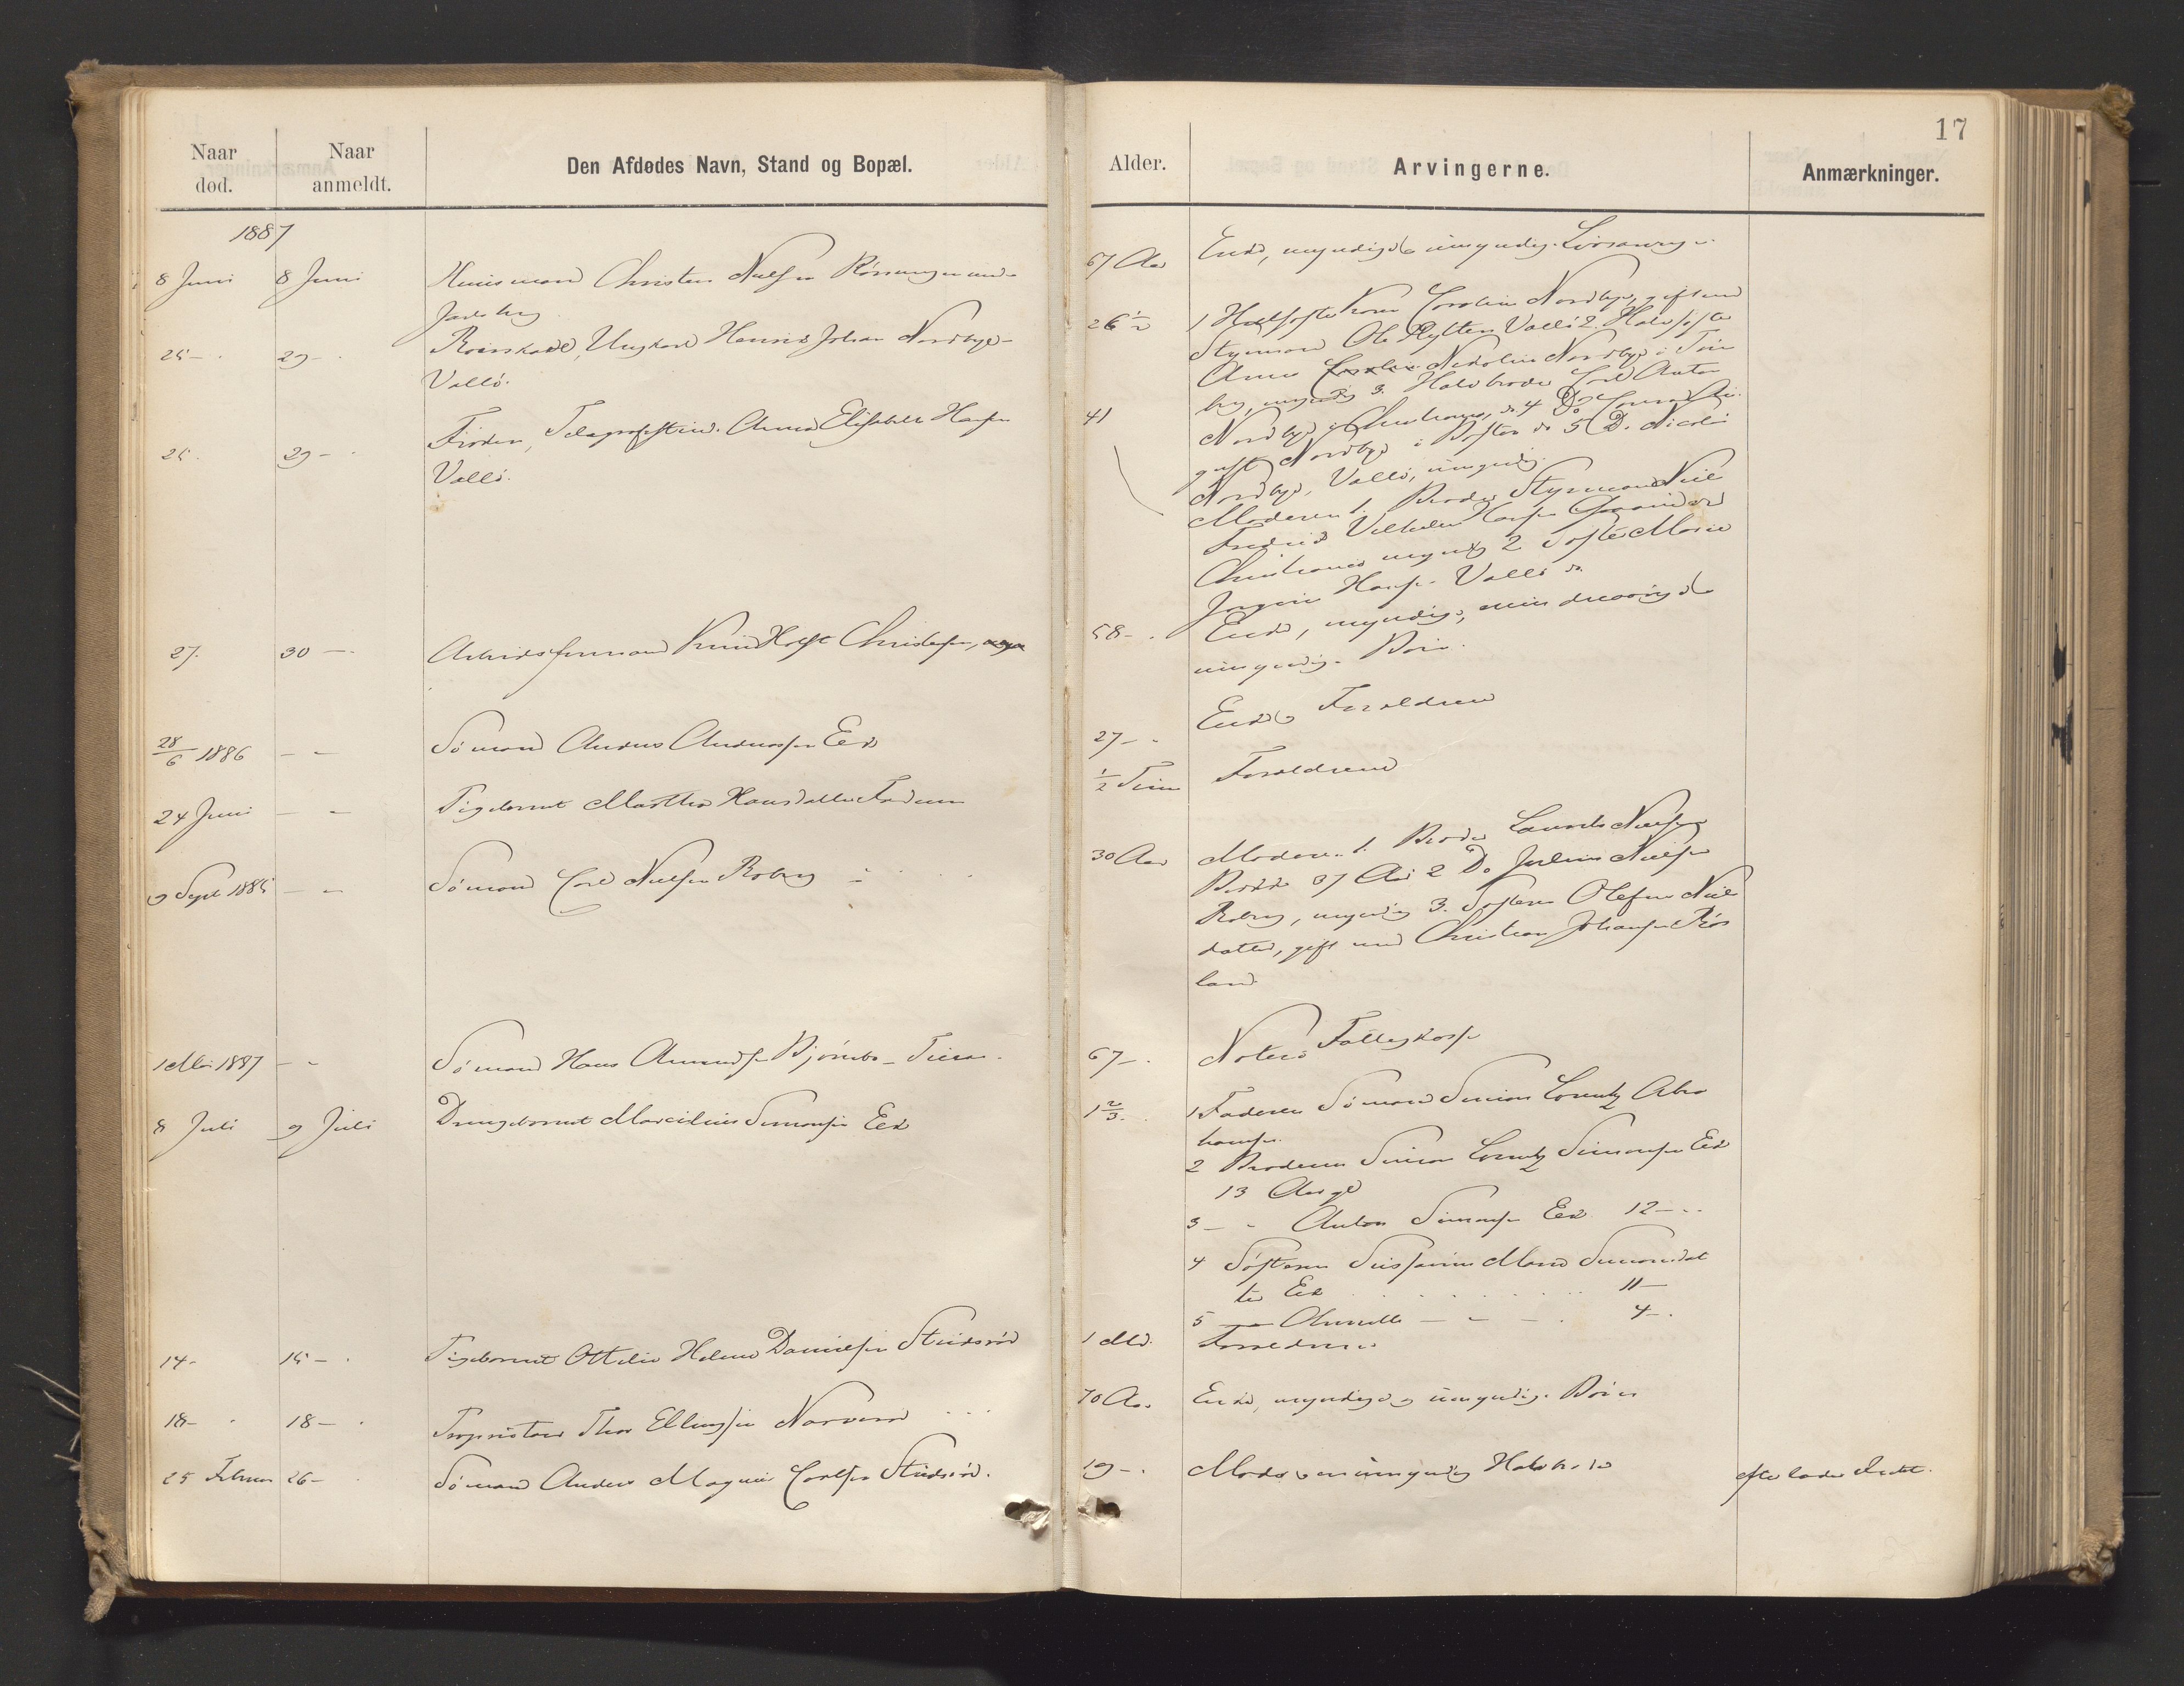 17
Naar død.
Naar anmeldt.
Den Afdødes Navn, Stand og Bopæl.
Alder.
Arvingerne.
Anmærkninger.
1887
8 Juni 8 Juni Huusmand Christen Nielsen
Jarlsberg
67 Aar Enke, myndige & umyndige Livsarvinger
25 - 29 - Ungkarl Henrik Johan Nordbye
Vallö.
26 1/2 1 Helsøster Karen Caroline Nordbye, gift med
Styrmand Ole Vallö 2. Halvsøster
Anna Nikoline Nordbye i Töns
berg, myndig 3. Halvbroder Carl Anton
Nordbye i Christiania, do 4 Do Conrad Au
gust Nordbye i Boston do 5 Do. Nicolai
Nordbye, Vallö, umyndig.
25. 29 - Frøken, Telegrafistinde Anna Elisabeth Hansen
Vallö.
41 Moderen 1. Broder Styrmand Niels
Fredrik Vilhelm Hansen
Christiania myndig 2 Søster Marie
Jørgine Hansen Vallö do.
27. 30 - Arbeidsformand Knud Holst Christensen,
58 - Enke, myndige, mindreaarige &
umyndige Børn.
28/6 1886 - - Sömand Anders Andersen Eek
27 - Enke & Forældrene
24 Juni - - Pigebarnet Martha Hansdatter
1/2 Time Forældrene
9 Sept 1885 - - Sömand Carl Nielsen Roberg
30 Aar Moderen 1. Broder Laurits Nielsen
37 Aar 2 Do Julius Nielsen
Roberg, myndig 3. Søsteren Olefine Niels
datter, gift med Christian Johansen
land
1 Mai 1887 - - Sömand Hans Amundsen Bjørnebo - Tiern
67 - Nøterö Fattigkasse
8 Juli 9 Juli Drengebarnet Marcilius Simonsen Eek
1 2/3 1 Faderen Sömand Simon Lorentz Abra
hamsen.
2 Broderen Simon Lorentz Simonsen Eek
13 Aar gl
3 - " Anton Simonsen Eek 12 -
4 Søsteren Marie Simonsdat
ter Eek 11 -
5 - - - - 4 -.
14 - 15 - Pigebarnet Ottilie Helene Danielsen Studsrød
1 Md. Forældrene
18 - 18 - Proprietær Thor Ellingsen Narverød
70 Aar Enke, myndige og umyndige Börn
25 Februar 26 - Sömand Anders Magnus Carlsen Studsröd.
19 - Moder & en umyndig Halvbroder
efterlader Intet.